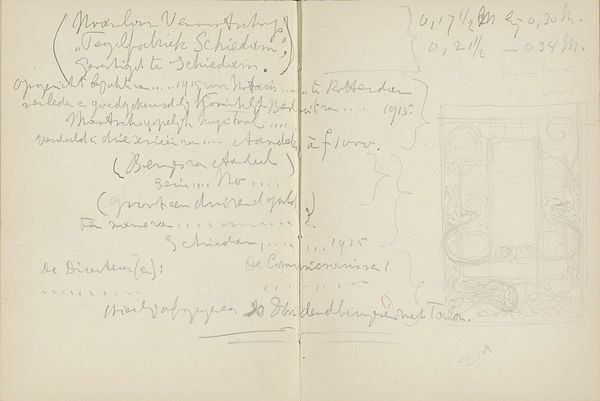 (Naamlooze Vennootschap
"Tegelfabriek Schiedam",
Gevestigd te Schiedam.
opgericht bij akte van ..... 1915 voor Notaris ..... te Rotterdam
verleden & goedgekeurd bij Koninklijk Besluit van ..... 1915.
Maatschappelijk kapitaal .....
verdeeld in drie seriën van ... Aandeelen à f 1000.
(Bewijs van Aandeel)
Serie .... No ....
(groot een duizend guld.)
ten name van ............
Schiedam, ........ 1915
De Directeur(en):
De Commissarissen:
Hierbij afgegeven 20 Dividendbewijzen met Talon.
0,17 1/2 M bij 0,30 M.
0,21 1/2 — 0,34 M.